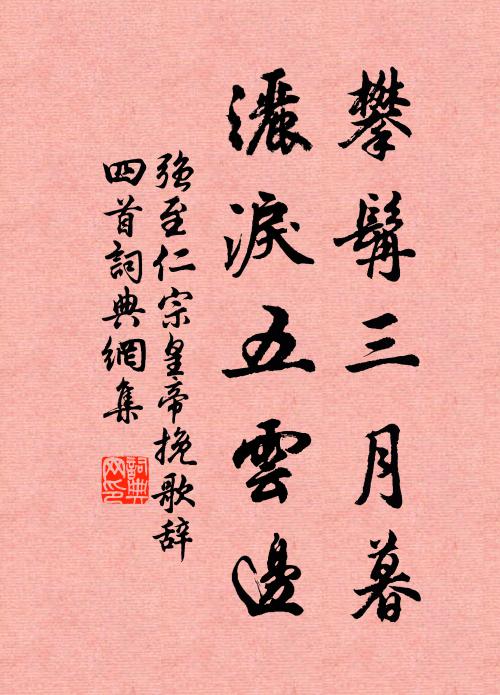 攀髯三月暮
灑淚五雲邊
強至仁宗皇帝挽歌辞
四首詞典網集
詞典
网印